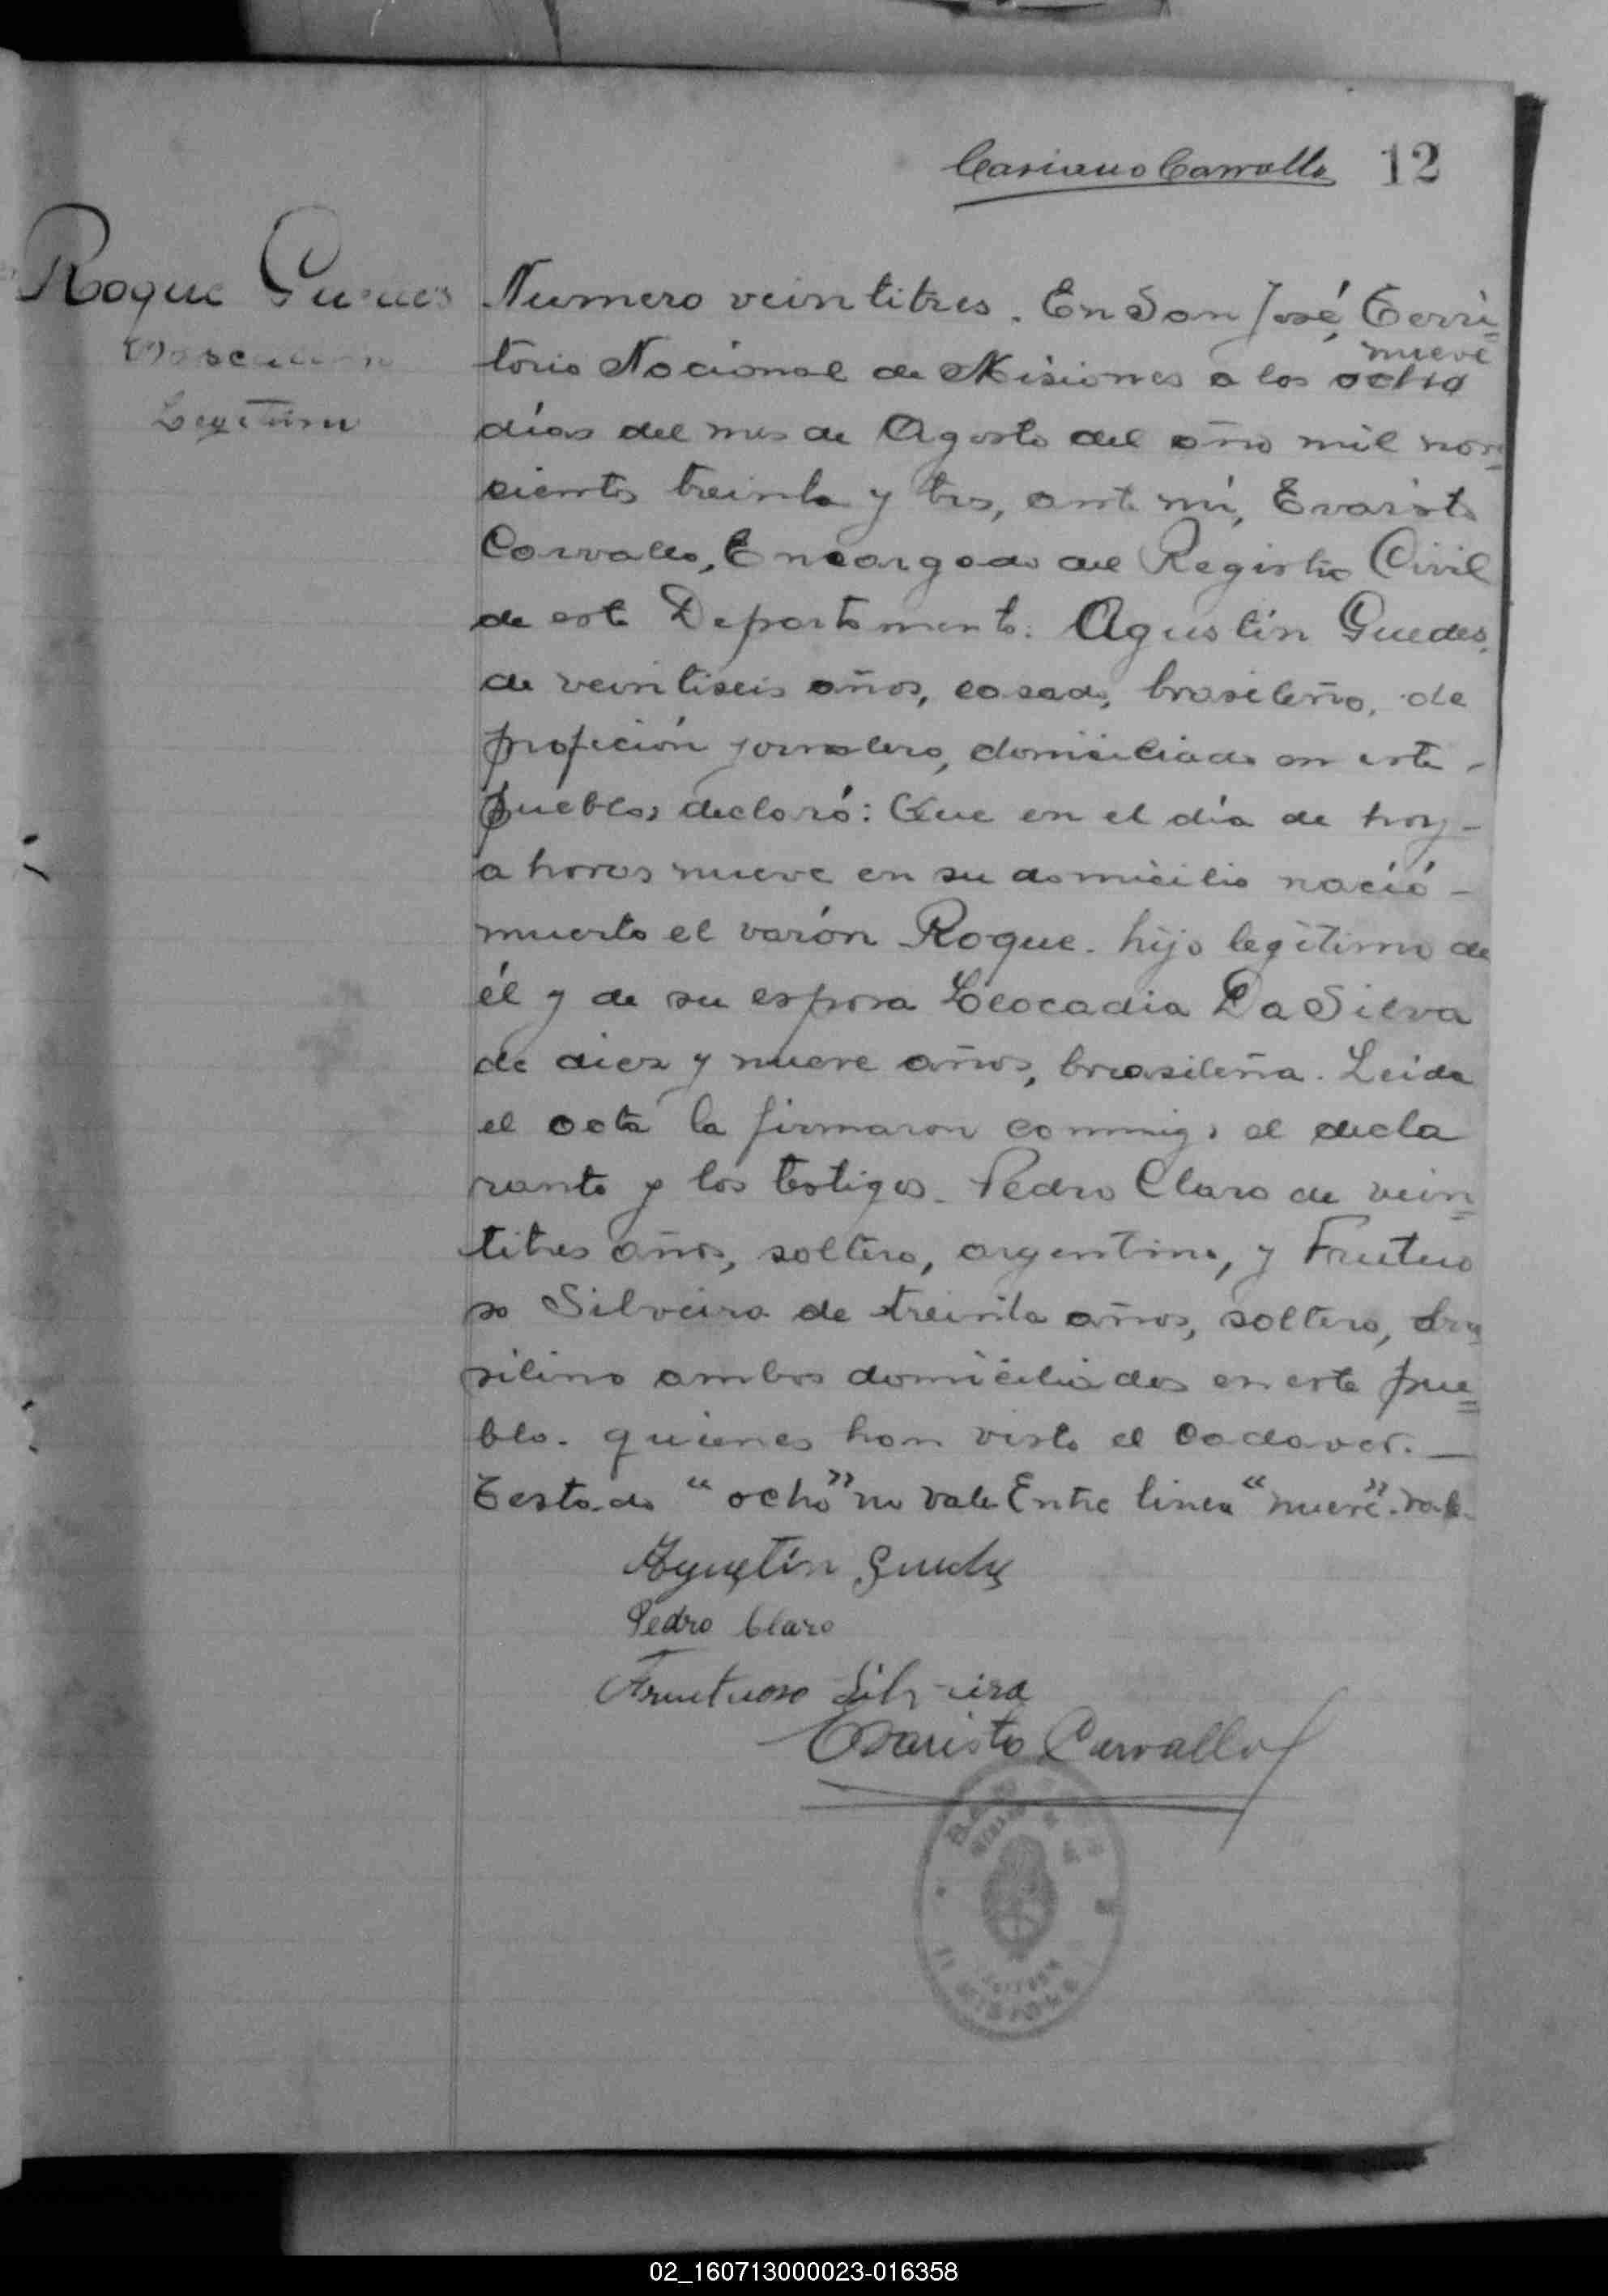 Casiano Carvallo 12
Roque Guedes
Masculino
Legitimo
Numero veintitres. En San José, Terri=
torio Nacional de Misiones a los ocho nueve
días del mes de Agosto del año mil nove=
cientos treinta y tres, ante mí, Evaristo
Carvallo, Encargado del Registro Civil
de este Departamento: Agustín Guedes,
de veintiseis años, casado, brasileño, de
profición jornalero, domiciliado en este -
pueblo, declaró: Que en el día de hoy -
a horas nueve en su domicilio nació -
muerto el varón Roque. hijo legítimo de
él y de su esposa Leocadia Da Silva
de diez y nueve años, brasileña. Leida
el acta la firmaron conmigo el decla
rante y los testigos. Pedro Claro de vein=
titres años, soltero, argentino, y Frutuo
so Silveira de treinta años, soltero, bra=
silino ambos domiciliados en este pue=
blo. quienes han visto el cadaver. -
Testado "ocho" no vale Entre linea "nueve". vale.
Agustín Guedes
Pedro Claro
Frutuoso Silveira
Evaristo Carvallo
MISIONES
02_160713000023-016358